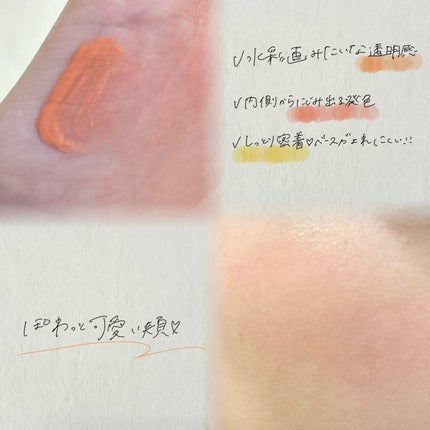 ✓水彩画みたいな透明感
✓内側からにじみ出る発色
✓しっとり密着♡ベースがよれにくい!!
ぽわっと可愛い頬♡